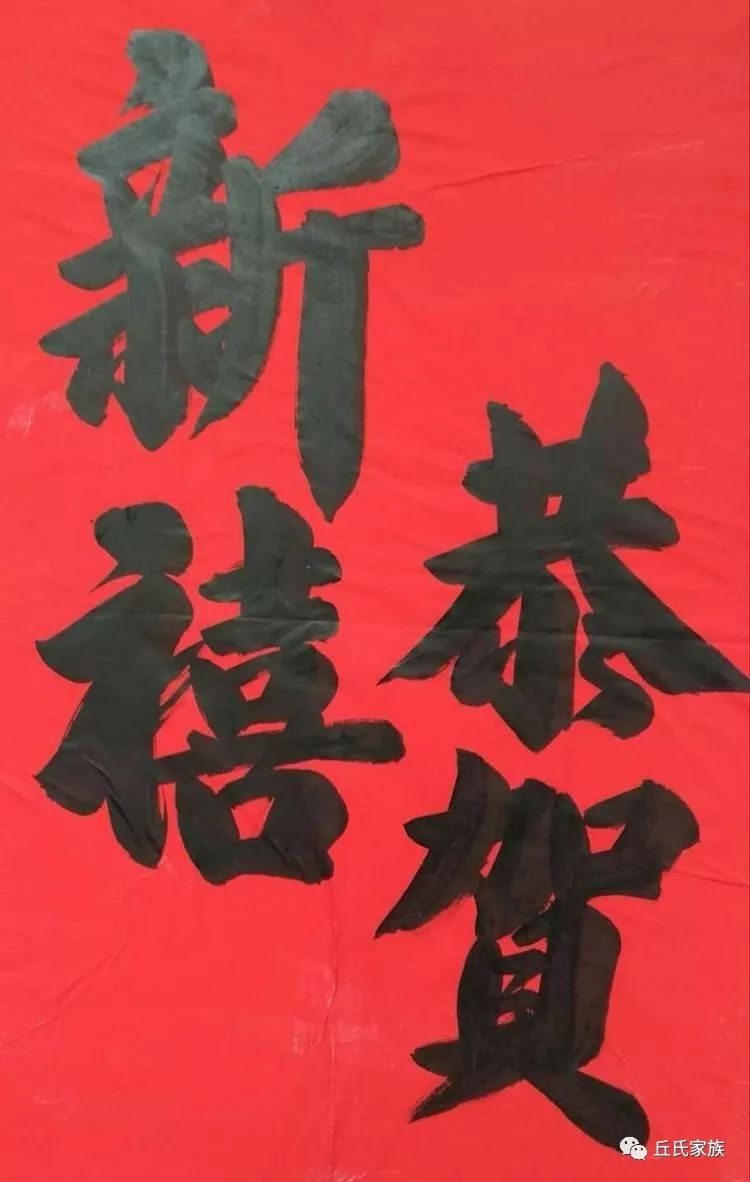 恭賀
新禧
丘氏家族